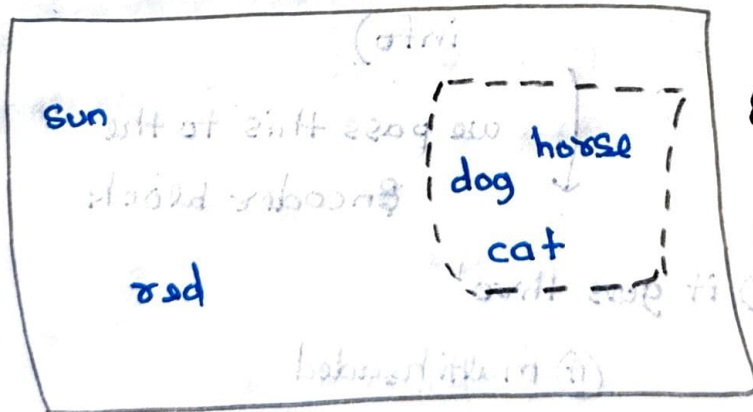 sun
horse
dog
cat
red